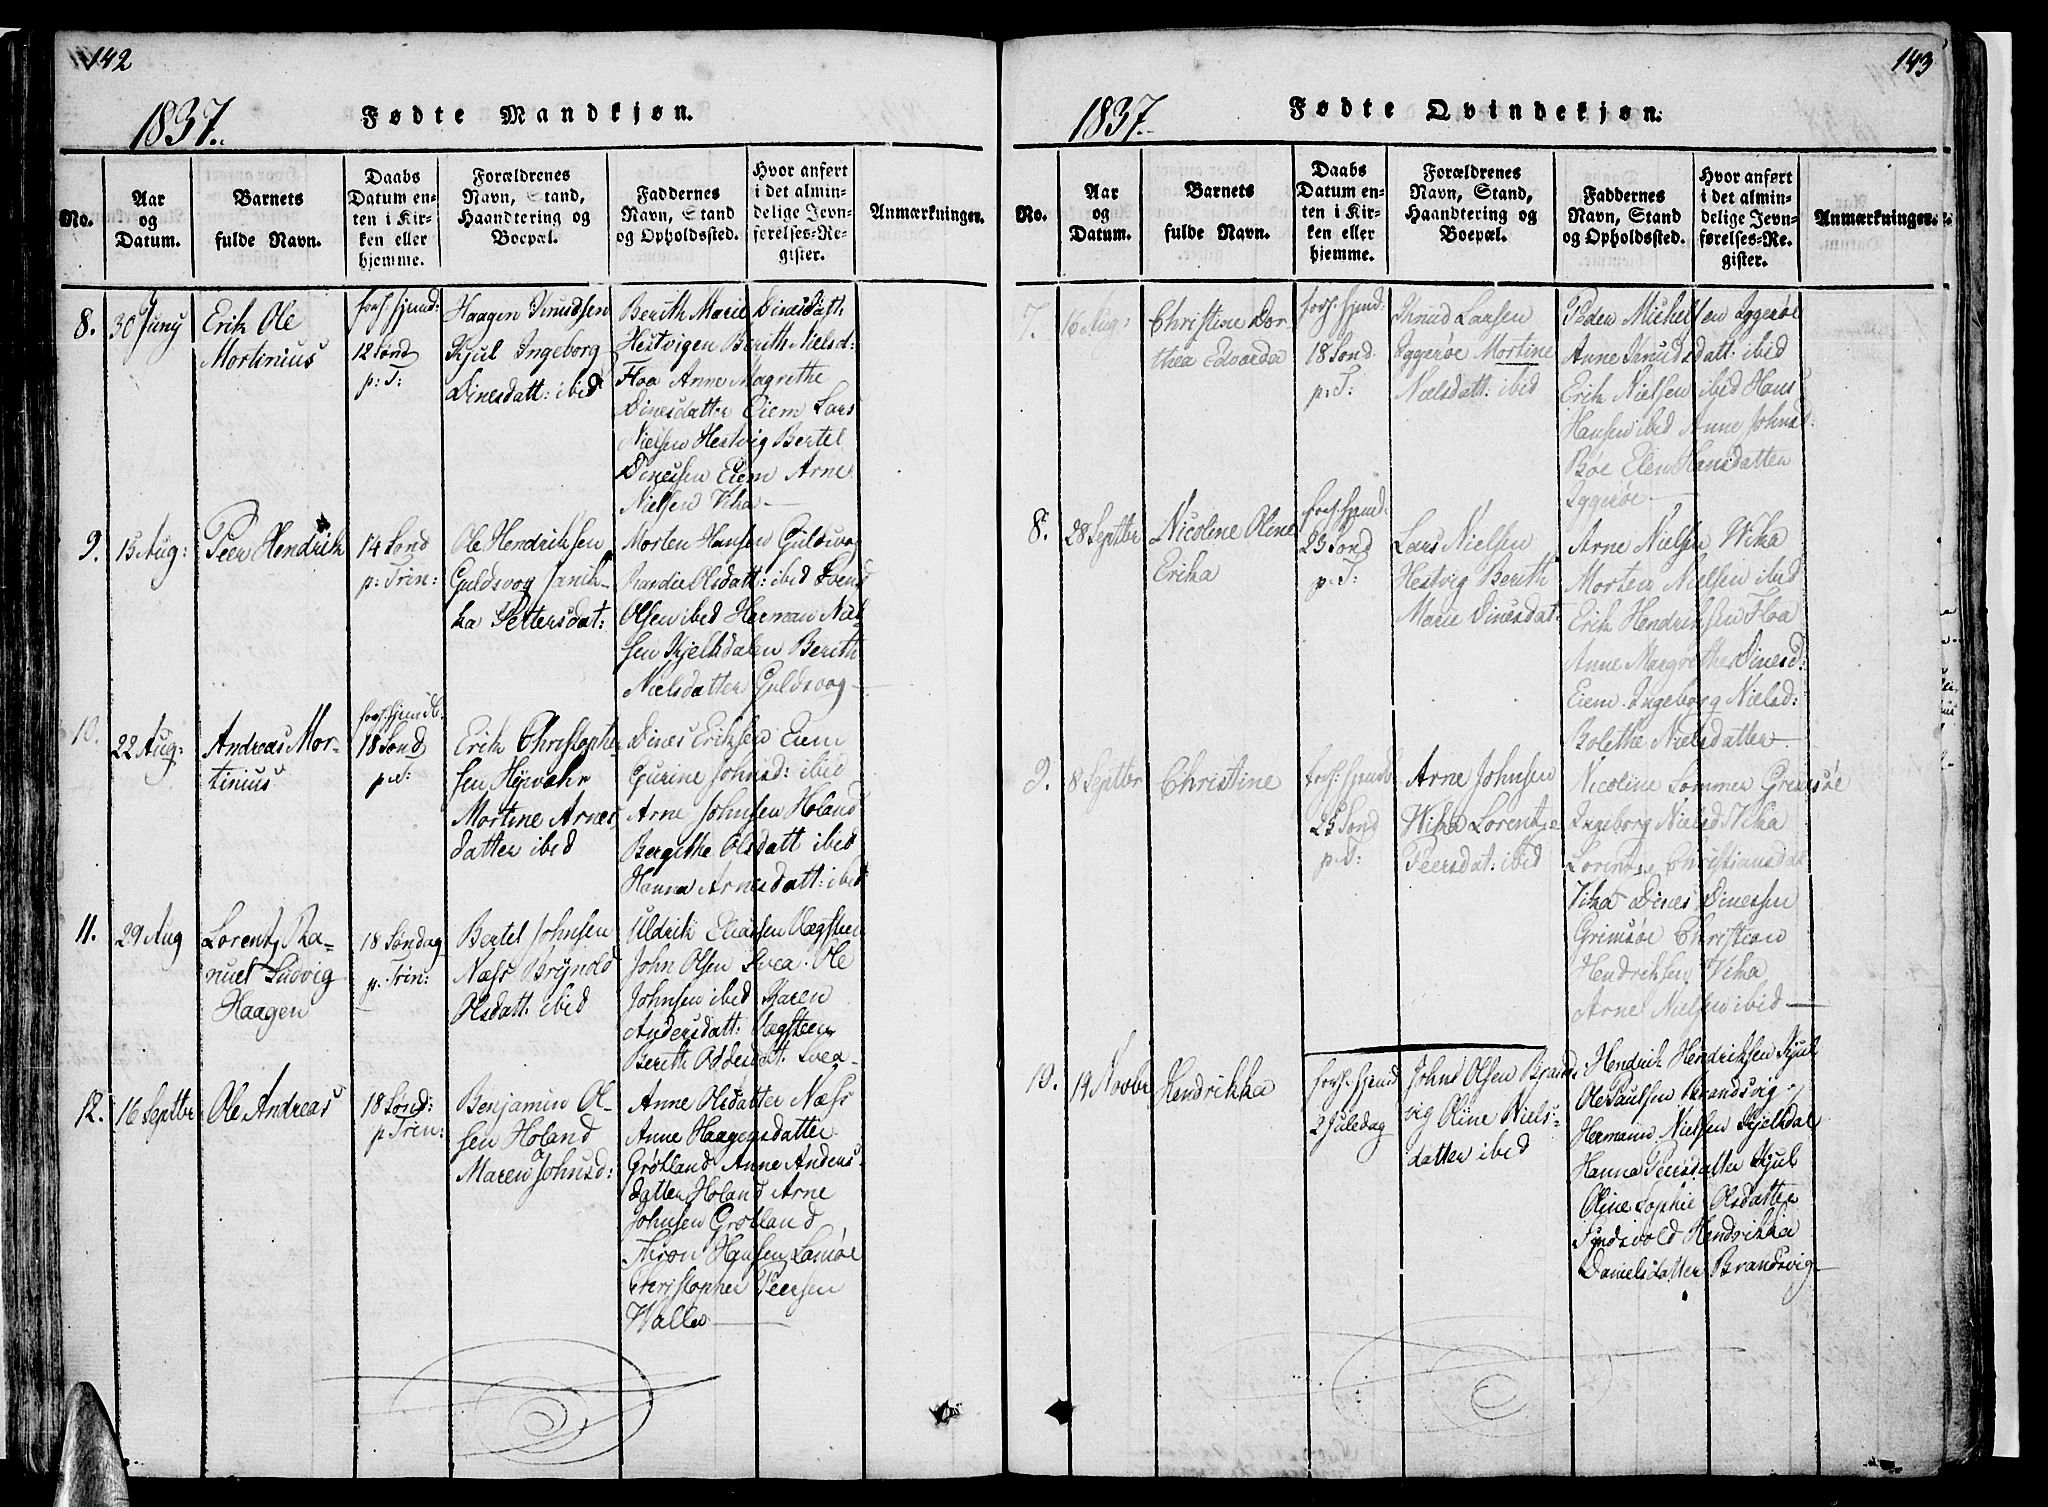 142
1837.
Fødte Mandkjøn.
No.
Aar
og
Datum.
Barnets
fulde Navn.
Daabs
Datum en-
ten i Kir-
ken eller
hjemme.
Forældrenes
Navn, Stand,
Haandtering og
Boepæl.
Faddernes
Navn, Stand
og Opholdssted.
Hvor anført
i det almin-
delige Jevn-
førelses-Re-
gister.
Anmærkninger.
8.
30 Juny
Erik Ole
Mortinius
12 Sønd
p: T:
Haagen Knudsen
Kjul Ingeborg
Dinesdatt: ibid
Berith Marie Dinesdatt:
Hestvigen Berith Nielsd:
Floa Anne Magrethe
Dinesdatter Eiem Lars
Nielsen Hestvig Bertel
Dinessen Eiem Arne
Nielsen Vika
9.
15 Aug:
Peer Hendrik
14 Sønd
p: Trin:
Ole Hendriksen
Guldsvog Janik-
ka Pettersdat:
Morten Hansen Guldsvog
Randie Olsdatt: ibid Svend
Olsen ibid Herman Niel-
sen Kjelkdalen Berith
Nielsdatter Guldsvog
10.
22 Aug:
Andreas Mor-
tinius
18 Sønd
p: T:
Erik Christophe-
sen
Mortine Arnes-
datter ibid
Dines Eriksen Eiem
Gurine Johnsd: ibid
Arne Johnsen Holand
Bergithe Olsdatt ibid
Hanna Arnesdatt: ibid
11.
29 Aug
Lorentz Ra-
nuel Ludvig
Haagen
18 Søndag
p: Trin:
Bertel Johnsen
Næss Brynold
Olsdatt: ibid
Uldrik Eliassen
John Olsen Svea. Ole
Johnsen ibid Karen
Andersdatt:
Berith Oddesdat: Svea
12.
16 Septbr
Ole Andreas
18 Sønd:
p Trin:
Benjamin Ol-
sen Holand
Maren Johnsd:
Anne Olsdatter Næss
Anne Haagensdatter
Grøtland Anne Anders-
datter Holand Arne
Johnsen Grøtland
Hansen
Christopher Peersen
Walle
143
1837.
Fødte Qvindekjøn.
No.
Aar
og
Datum.
Barnets
fulde Navn.
Daabs
Datum en-
ten i Kir-
ken eller
hjemme.
Forældrenes
Navn, Stand,
Haandtering og
Boepæl.
Faddernes
Navn, Stand
og Opholdssted.
Hvor anført
i det almin-
delige Jevn-
førelses-Re-
gister.
Anmærkninger.
7.
16 Aug:
Christine Dor-
thea Edvarda
18 Sønd
p: T:
Knud Larsen
Iggerøe Mortine
Nielsdatt: ibid
Peder Michelsen Iggerøe
Anne Knudsdatt: ibid
Erik Nielsen ibid Hans
Hansen ibid Anne Johnsd:
Røe Elen Hansdatter
Iggerøe
8.
28 Septbr
Nicoline Oline
Erika
23 Sønd
p: T:
Lars Nielsen
Hestvig Berith
Marie Dinesdat:
Arne Nielsen Wika
Morten Nielsen ibid
Erik Hendriksen Floa
Anne Margrethe Dinesd:
Eiem. Ingeborg Nielsd:
Bolethe Nielsdatter
9.
8 Septbr
Christine
25 Sønd
p: T:
Arne Johnsen
Wika Lorentze
Peersdat: ibid
Nicoline Sommer Grimsøe
Ingeborg Nielsd Vika
Lorentze Christiansdat
Vika Dines Dinessen
Grimsøe Christian
Hendriksen Vika
Arne Nielsen ibid
10.
19 Novbr
Hendrikka
2 Juledag
Johns Olsen Brands-
vig Oline Niels-
datter ibid
Hendrik Hendriksen Kjul
Ole Paulsen Brandsvig
Hermann Nielsen Kjelkdal
Hanna Peersdatter Kjul
Oline Sophie Olsdatter
Hendrikka
Danielsdatter Brandsvig